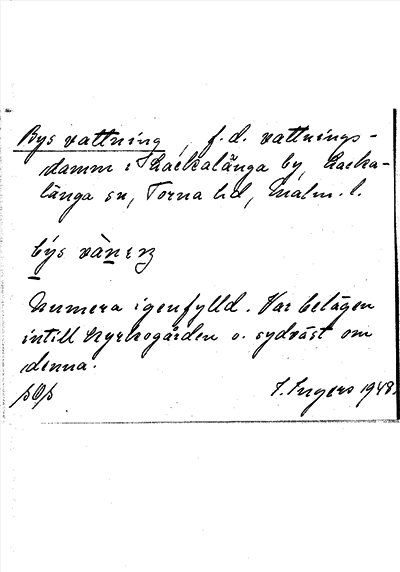 Bys vattning, f.d. vattnings-
damm i Lackalänga by, Lacka-
länga sn, Torna hd, Malm. l.
býs vànɛŋ
Numera igenfylld. Var belägen
intill kyrkogården o. sydväst om
denna.
I. Ingers 1948.